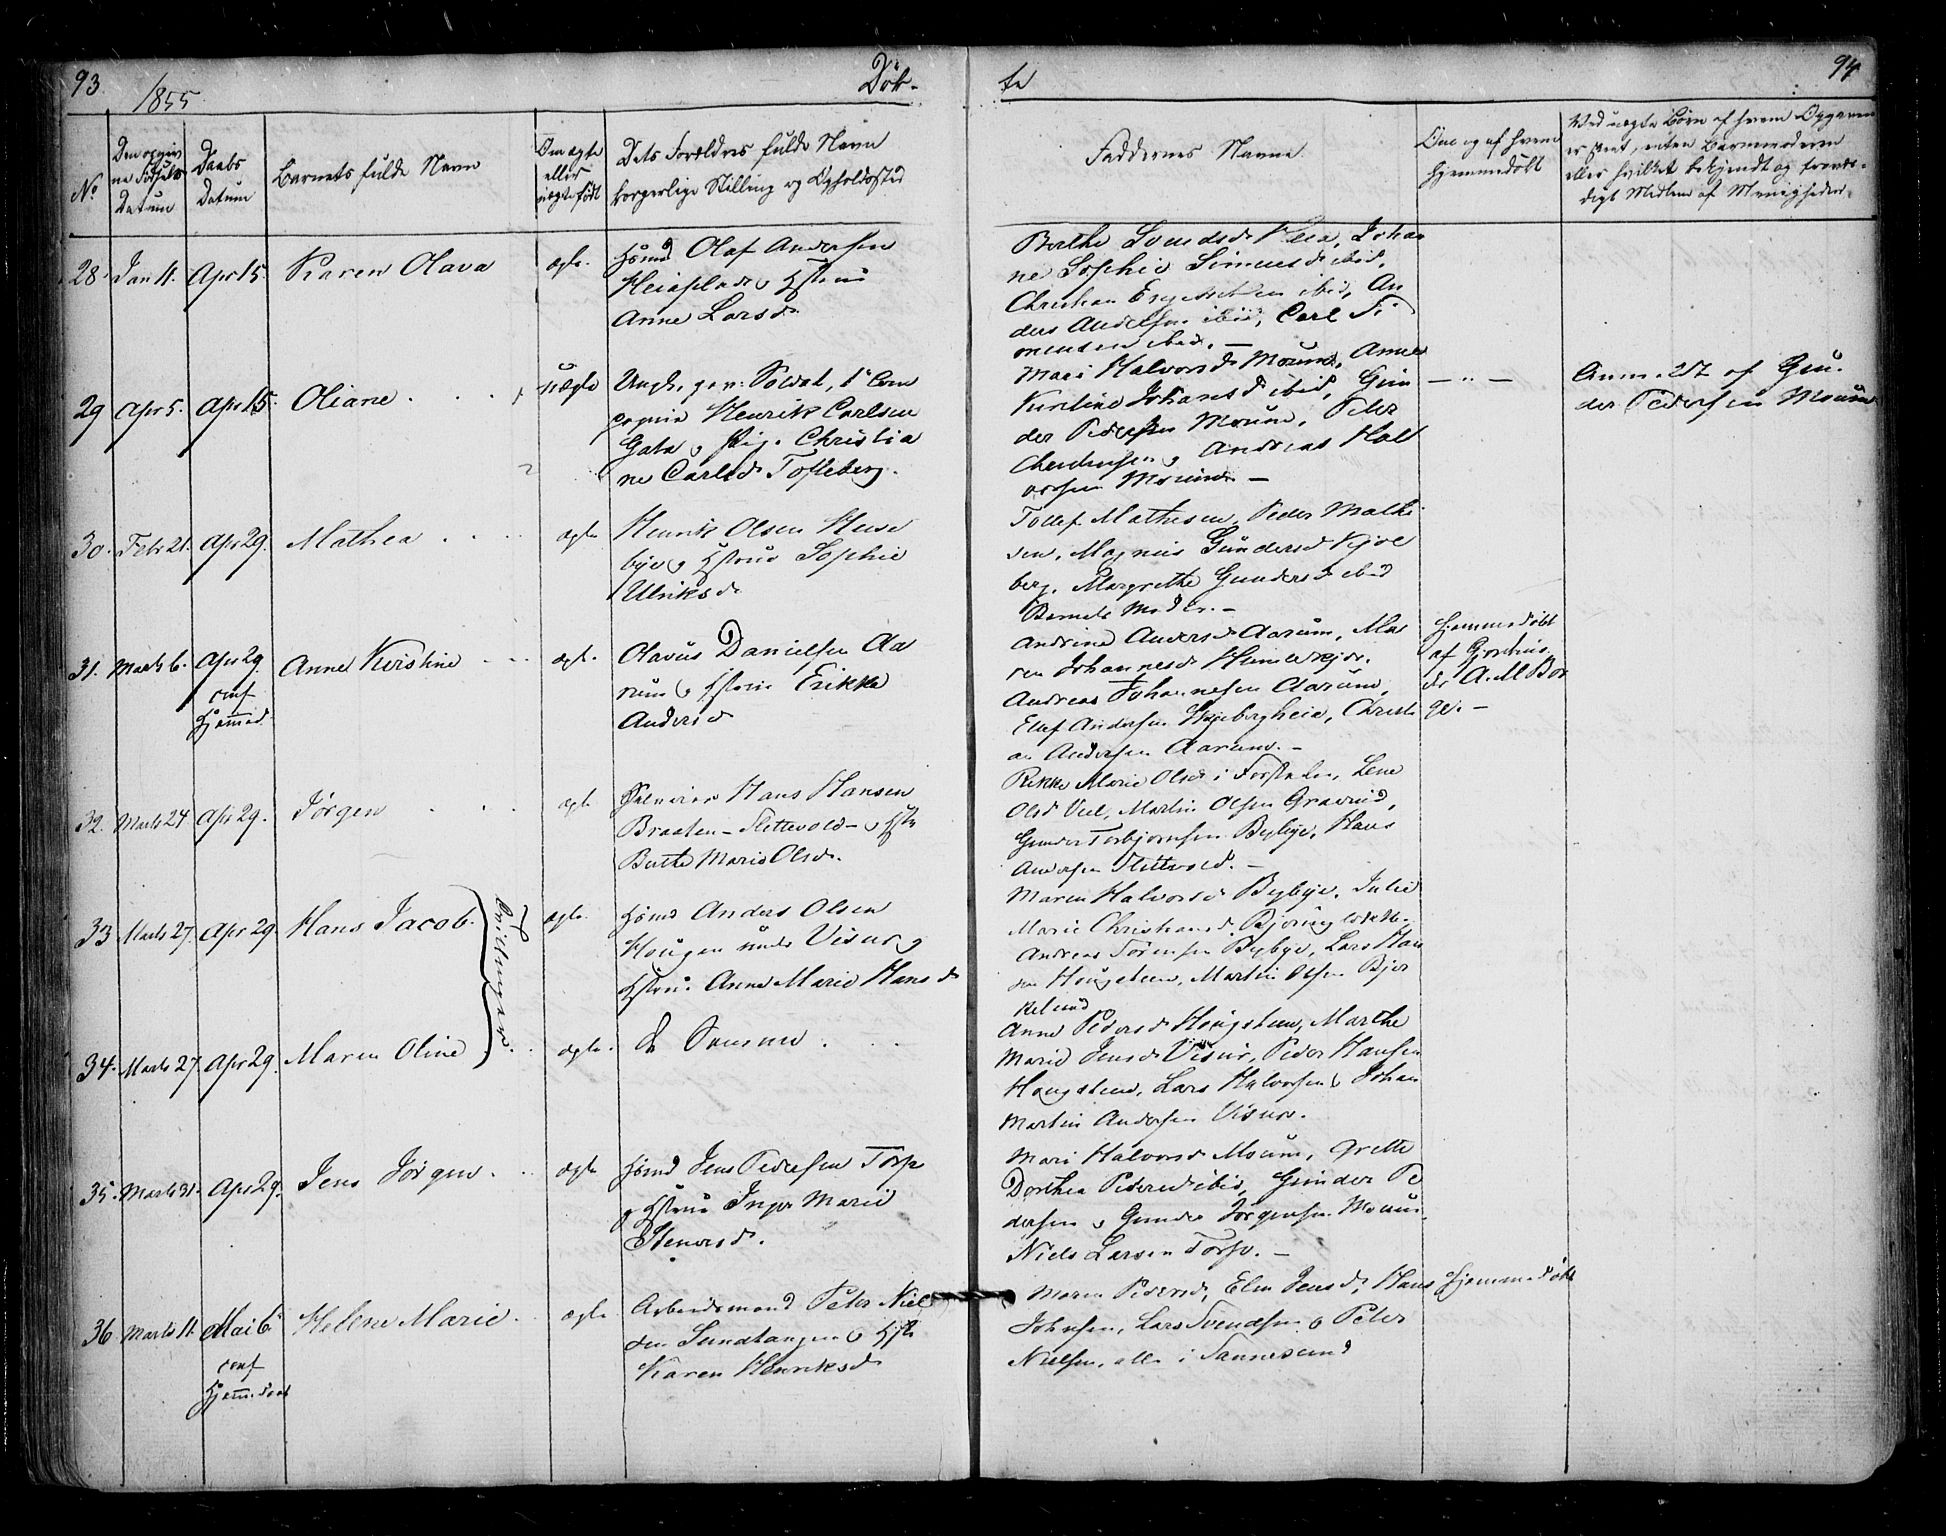 93 1855 Döb-
te 94
No
Den opgiv
ne Fødsels
Datum
Daabs
Datum
Barnets fulde Navn
Om ægte
eller
uægte født
Dets Forældres fulde Navn
borgerlige Stilling og Opholdssted
Faddernes Navne
Om og af hvem
hjemmedöbt
Ved uægte Børn af hvem Opgaven
er skeet, enten Barnemoderen
eller hvilket bekjendt og trovær-
digt Medlem af Menigheden.
28. Jan 11. Apr 15. Karen Olava ægte.
Hsmd Olaf Andersen
Heia og Hstru
Anne Larsd
Berthe Svendsd Heia, Johan
ne Sophie Simensd ibid,
Christian ibid, An
ders Andersen ibid, Carl Si
mensen ibid. —
29 Apr 5. Apr 15. Oliane . . . uægte
Ungk. gev: Soldat, 1ste Com
pagnie Henrik Carlsen
Gata og Pig. Christia
ne Carlsd Tofteberg.
Mari Halvorsd Moum, Anne
Kirstine Johansd ibid, Gun
der Pedersen Moum, Peter
Christensen og Andreas Hal
vorsen Moum —
— " —
Anm. af Gun-
der Pedersen Moum
30. Febr 21. Apr 29. Mathea . . . ægte
Henrik Olsen Huse
bye og Hstrue Sophie
Ulriksd
Tollef Mathesen, Peder Mathi
sen, Magnus Gundersd Kjøl
berg, Margrethe Gundersd ibid
Barnets Moder. —
31. Marts 6. Apr 29. Anne Kirstine . . . ægte.
conf
Hjemmed.
Olavus Danielsen Aa
rum og Hstrue Erikke
Andersd
Andrine Andersd Aarum, Ma
ren Johannesd Humlekjær.
Andreas Johannesen Aarum,
Elef Andersen Skjebergheia, Christi
an Andersen Aarum. —
Hjemmedöbt
af Gjordmo
der A. M. Bor
ge. —
32. Marts 24 Apr 29. Jørgen . . . ægte
Hans Hansen
Braaten - Slittevold - og Hstr
Berthe Marie Olsd.
Rikke Marie Olsd i Torsnes, Lene
Olsd Viil, Martin Olsen Gravnid,
Gunder Torbjørnsen Bybye, Hans
Andersen Slittvold. —
33 Marts 27. Apr 29. Hans Jacob. ægte.
Tvillinger
Hsmd Anders Olsen
Hougen under Visur og
Hstru. Anne Marie Hansd
Maren Halvorsd Bybye, Julie
Marie Christiansd
Andreas Sørensen Bybye, Lars Han
sen Hougsteen, Martin Olsen Bjør
kelund
34. Marts 27. Apr 29. Maren Oline ægte.
De Samme . . .
Anne Pedersd Hougsteen, Marthe
Marie Jensd Visur, Peder Hansen
Hougsteen, Lars Halvorsen og Johan
Martin Andersen Visur.
35. Marts 31. Apr 29. Jens Jørgen. . . ægte
Hsmd Jens Pedersen Torp
og Hstrue Inger Marie
Stenersd.
Mari Halvorsd Moum, Grette
Dorthea Pedersd ibid, Gunder Pe
dersen og Gunder Jørgensen Moum.
Niels Larsen Torp. —
36. Marts 11. Mai 6. Helene Marie. . . ægte
conf
Hjem. Daab
Arbeidsmand Peter Niel
sen Sandtangen og Hstr
Karen Henriksd
Maren Pedersd, Elen Jensd, Hans
Johnsen, Lars Svendsen og Peter
Nielsen, alle i Sannesund
Hjemmedöbt